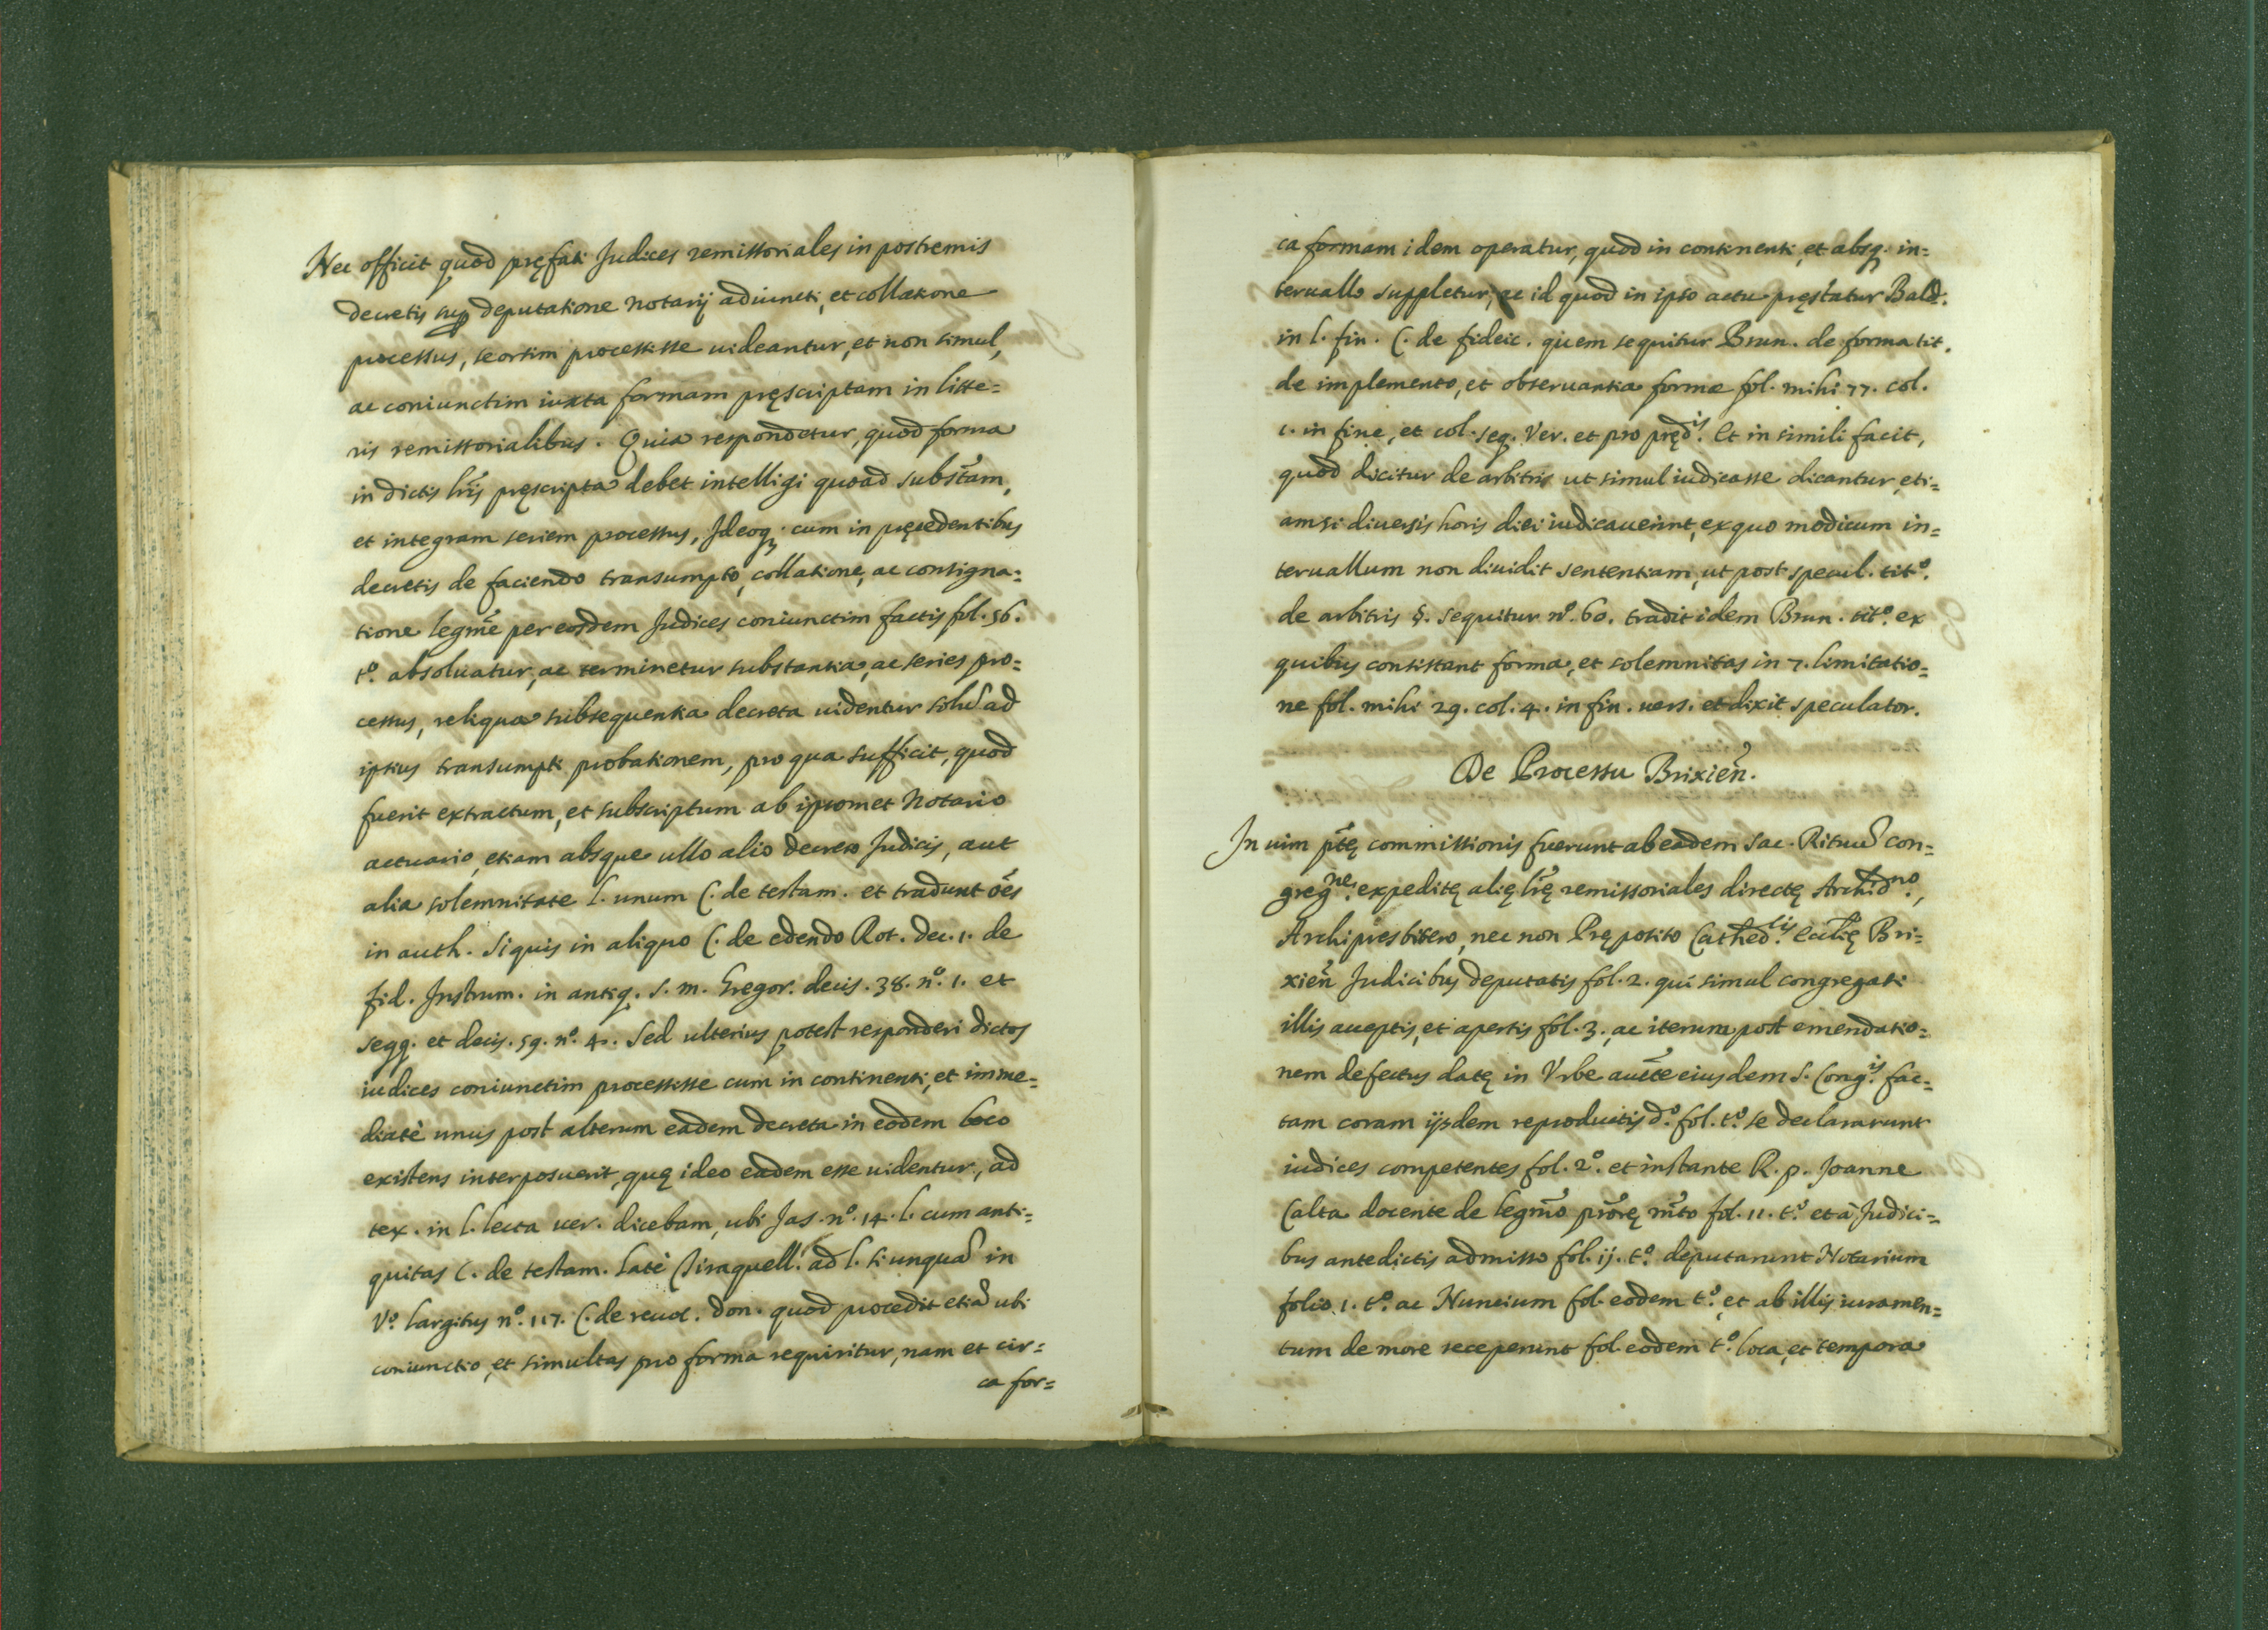 Nec officit quod pręfati Judices remissoriales in postremis
decretis sup deputatione Notarij adiuncti, et collatione
processus, seorsim processisse uideantur, et non simul,
ac coniunctim iuxta formam pręscriptam in litte=
ris remissorialibus. Quia respondetur, quod forma
in dictis lr̃is pręscripta debet intelligi quoad subst̃am,
et integram seriem processus, Ideoq; cum in pręcedentibus
decretis de faciendo transumpto, collatione, ac consigna=
tione legmẽ per eosdem Judices coniunctim factis fol. 56.
t.º absoluatur, ac terminetur substantia, ac series pro=
cessus, reliqua subsequentia decreta uidentur solũ ad
ipsius transumpti probationem, pro qua sufficit, quod
fuerit extractum, et subscriptum ab ipsomet Notario
actuario, etiam absque ullo alio decreto Judicis, aut
alia solemnitate l. unum C. de testam. et tradunt oẽs
in auth. Si quis in aliquo C. de edendo Rot. dec. 1. de
fid. Instrum. in antiq. s. m. Gregor. decis. 38. nº. 1. et
seqq. et decis. 59. nº. 4. Sed ulterius potest responderi dictos
iudices coniunctim processisse cum in continenti, et imme=
diatè unus post alterum eadem decreta in eodem loco
existens interposuerit, quę ideo eadem esse uidentur, ad
tex. in l. lecta uer. dicebam, ubi Jas. nº. 14. l. cum anti=
quitas C. de testam. latè Tiraquell. ad l. si unquã in
Vº. largitus nº. 117. C. de reuoc. don. quod procedit etiã ubi
coniunctio, et simultas pro forma requiritur, nam et cir=
ca for=
ca formam idem operatur, quod in continenti, et absq. in=
teruallo suppletur, ac id quod in ipso actu pręstatur Bald.
in l. fin. C. de fideic. quem sequitur Brun. de forma tit.
de implemento, et obseruantia formæ fol. mihi 77. col.
1. in fine, et col. seq. Ver. et pro pręd.is Et in simili facit,
quod dicitur de arbitris ut simul iudicasse dicantur, eti=
amsi diuersis horis diei iudicauerint, ex quo modicum in=
teruallum non diuidit sententiam, ut post specul. titº.
de arbitris §. sequitur nº. 60. tradit idem Brun. titº. ex
quibus consistant forma, et solemnitas in 7. limitatio=
ne fol. mihi 29. col. 4. in fin. uers. et dixit speculator.
De Processu Brixieñ.
In uim pñtę commissionis fuerunt ab eadem Sac. Rituũ con=
greg.ne expeditę alię lr̃ę remissoriales directę Archid.no,
Archipresbitero, nec non Pręposito Cathed.lis Eccl̃ię Bri=
xieñ Judicibus deputatis fol. 2. qui simul congregati
illis acceptis, et apertis fol. 3., ac iterum post emendatio=
nem defectus datę in Vrbe auctẽ eiusdem S. Cong.is fac=
tam coram ijsdem reproductis d.º fol. t.º se declararunt
iudices competentes fol. 2º. et instante R. p. Joanne
Calta docente de legmõ prõrę mãto fol. 11. t.º et à Judici=
bus antedictis admisso fol. ij. t.º deputarunt Notarium
folio 1. t.º ac Nuncium fol. eodem t.º, et ab illis iuramen=
tum de more receperunt fol. eodem t.º loca, et tempora